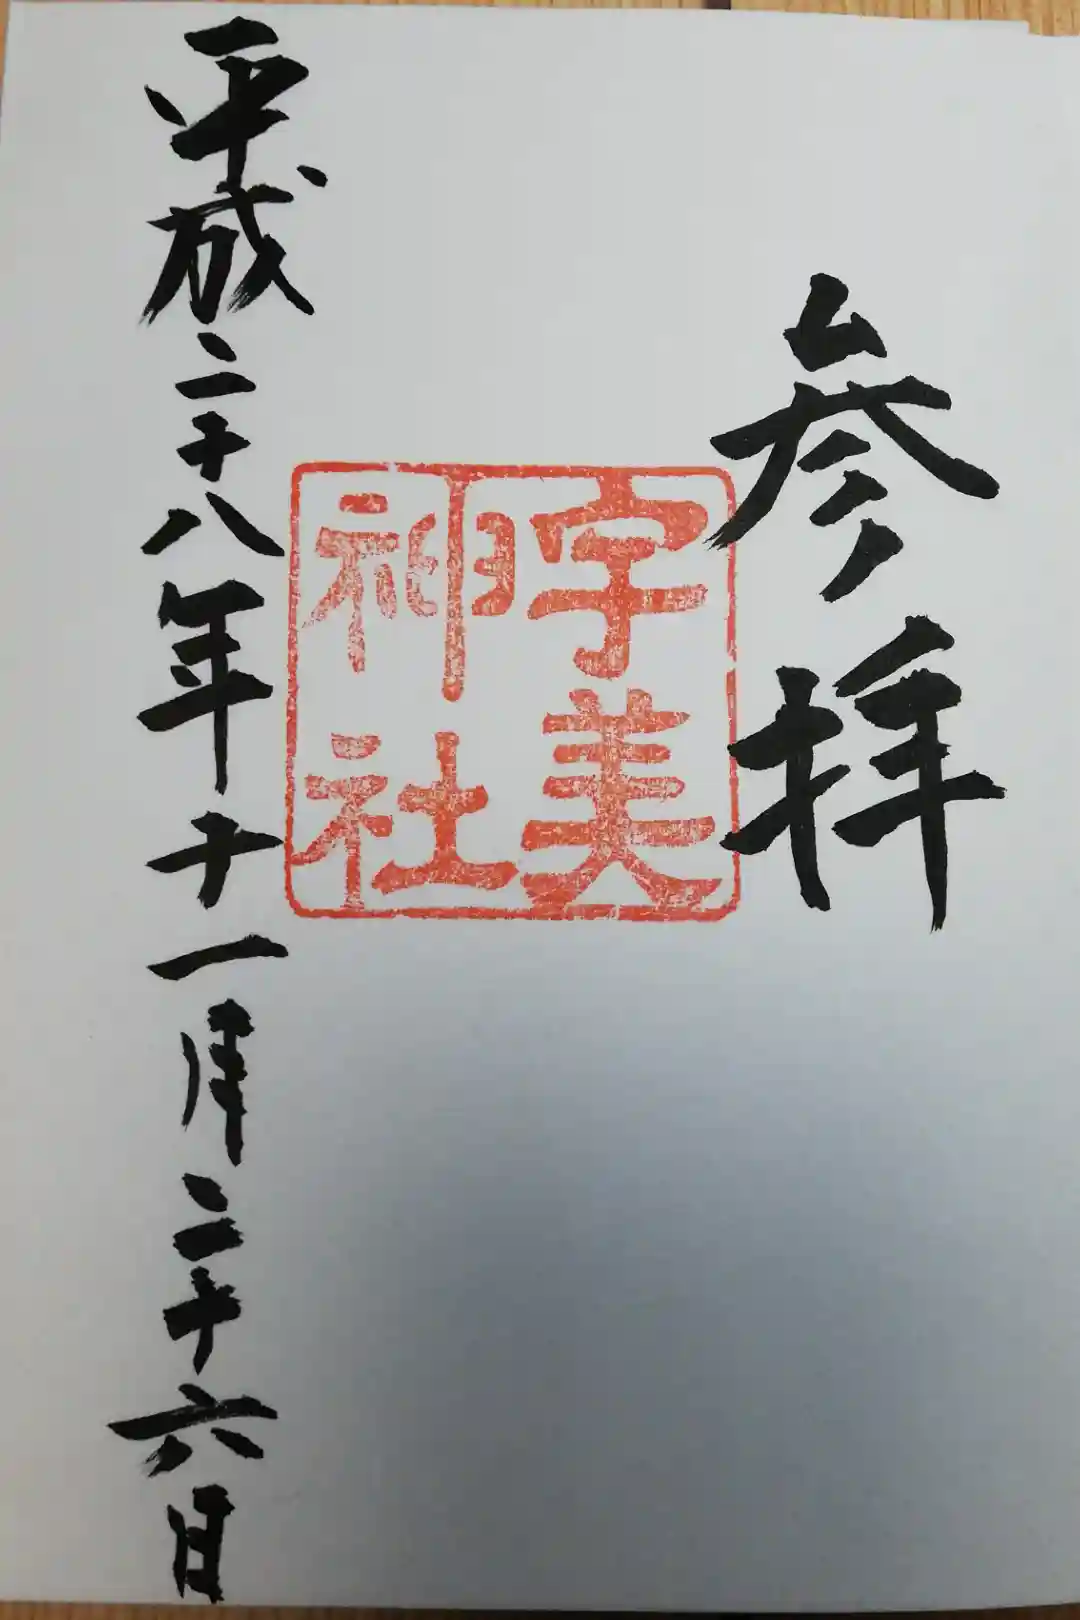 参拝
宇美
神社
平成二十八年十一月二十六日